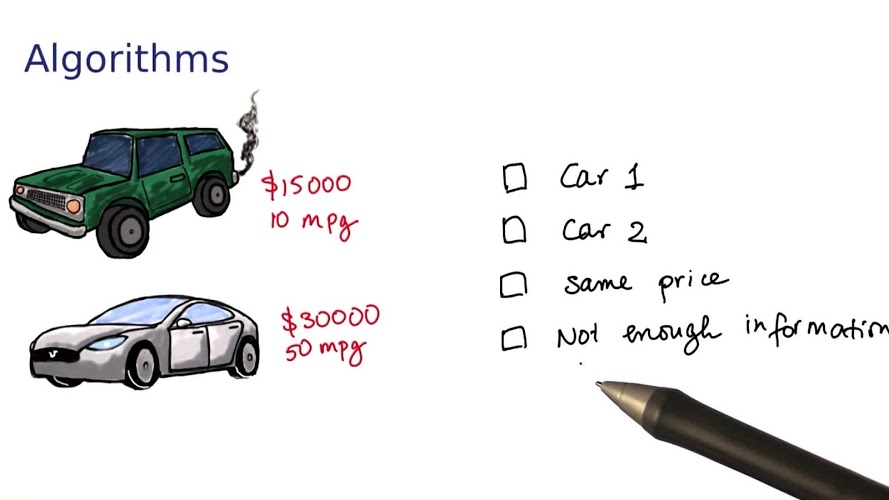 Algorithms
$15000
10 mpg
$30000
50 mpg
Car 1
Car 2
same price
Not enough information